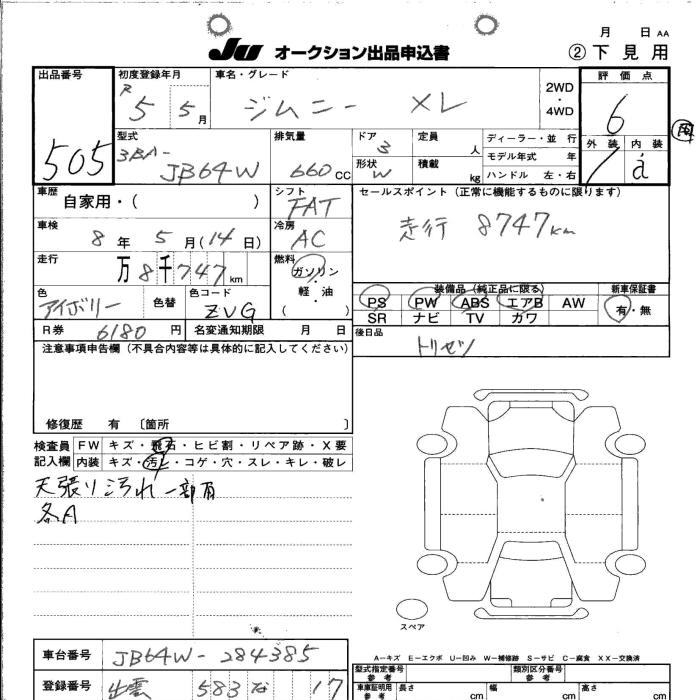 月 日 AA
JU オークション出品申込書 ②下見用
出品番号 初度登録年月 車名・グレード 2WD・4WD 評価点
505 R5 5月 ジムニー XL 6
型式 排気量 ドア 定員 人 ディーラー・並行 外装 内装
3BA-JB64W 660CC 3 形状 W 積載 kg モデル年式 年 ハンドル 左・右
車歴 自家用・( ) シフト FAT セールスポイント(正常に機能するものに限ります)
車検 8年5月(14日) 冷房 AC 走行 8747km
走行 万8千747km 燃料 ガソリン・軽・油 ( )
装備品(純正品に限る) 新車保証書
色 アイボリー 色替 色コード ZVG
PS PW ABS エアB AW 有・無
SR ナビ TV カワ
R券 6180円 名変通知期限 月 日 後日品
トリセツ
注意事項申告欄(不具合内容等は具体的に記入してください)
修復歴 有 〔箇所 〕
検査員 FW キズ・飛石・ヒビ割・リペア跡・X要
記入欄 内装 キズ・汚レ・コゲ・穴・スレ・キレ・破レ
天張り汚れ一部有
各A
スペア
A-キズ E-エクボ U-凹み W-補修跡 S-サビ C-腐食 XX-交換済
車台番号 JB64W-284385
型式指定番号 参考 類別区分番号 参考
登録番号 出雲 583 な 17
車庫証明用 参考 長さ cm 幅 cm 高さ cm